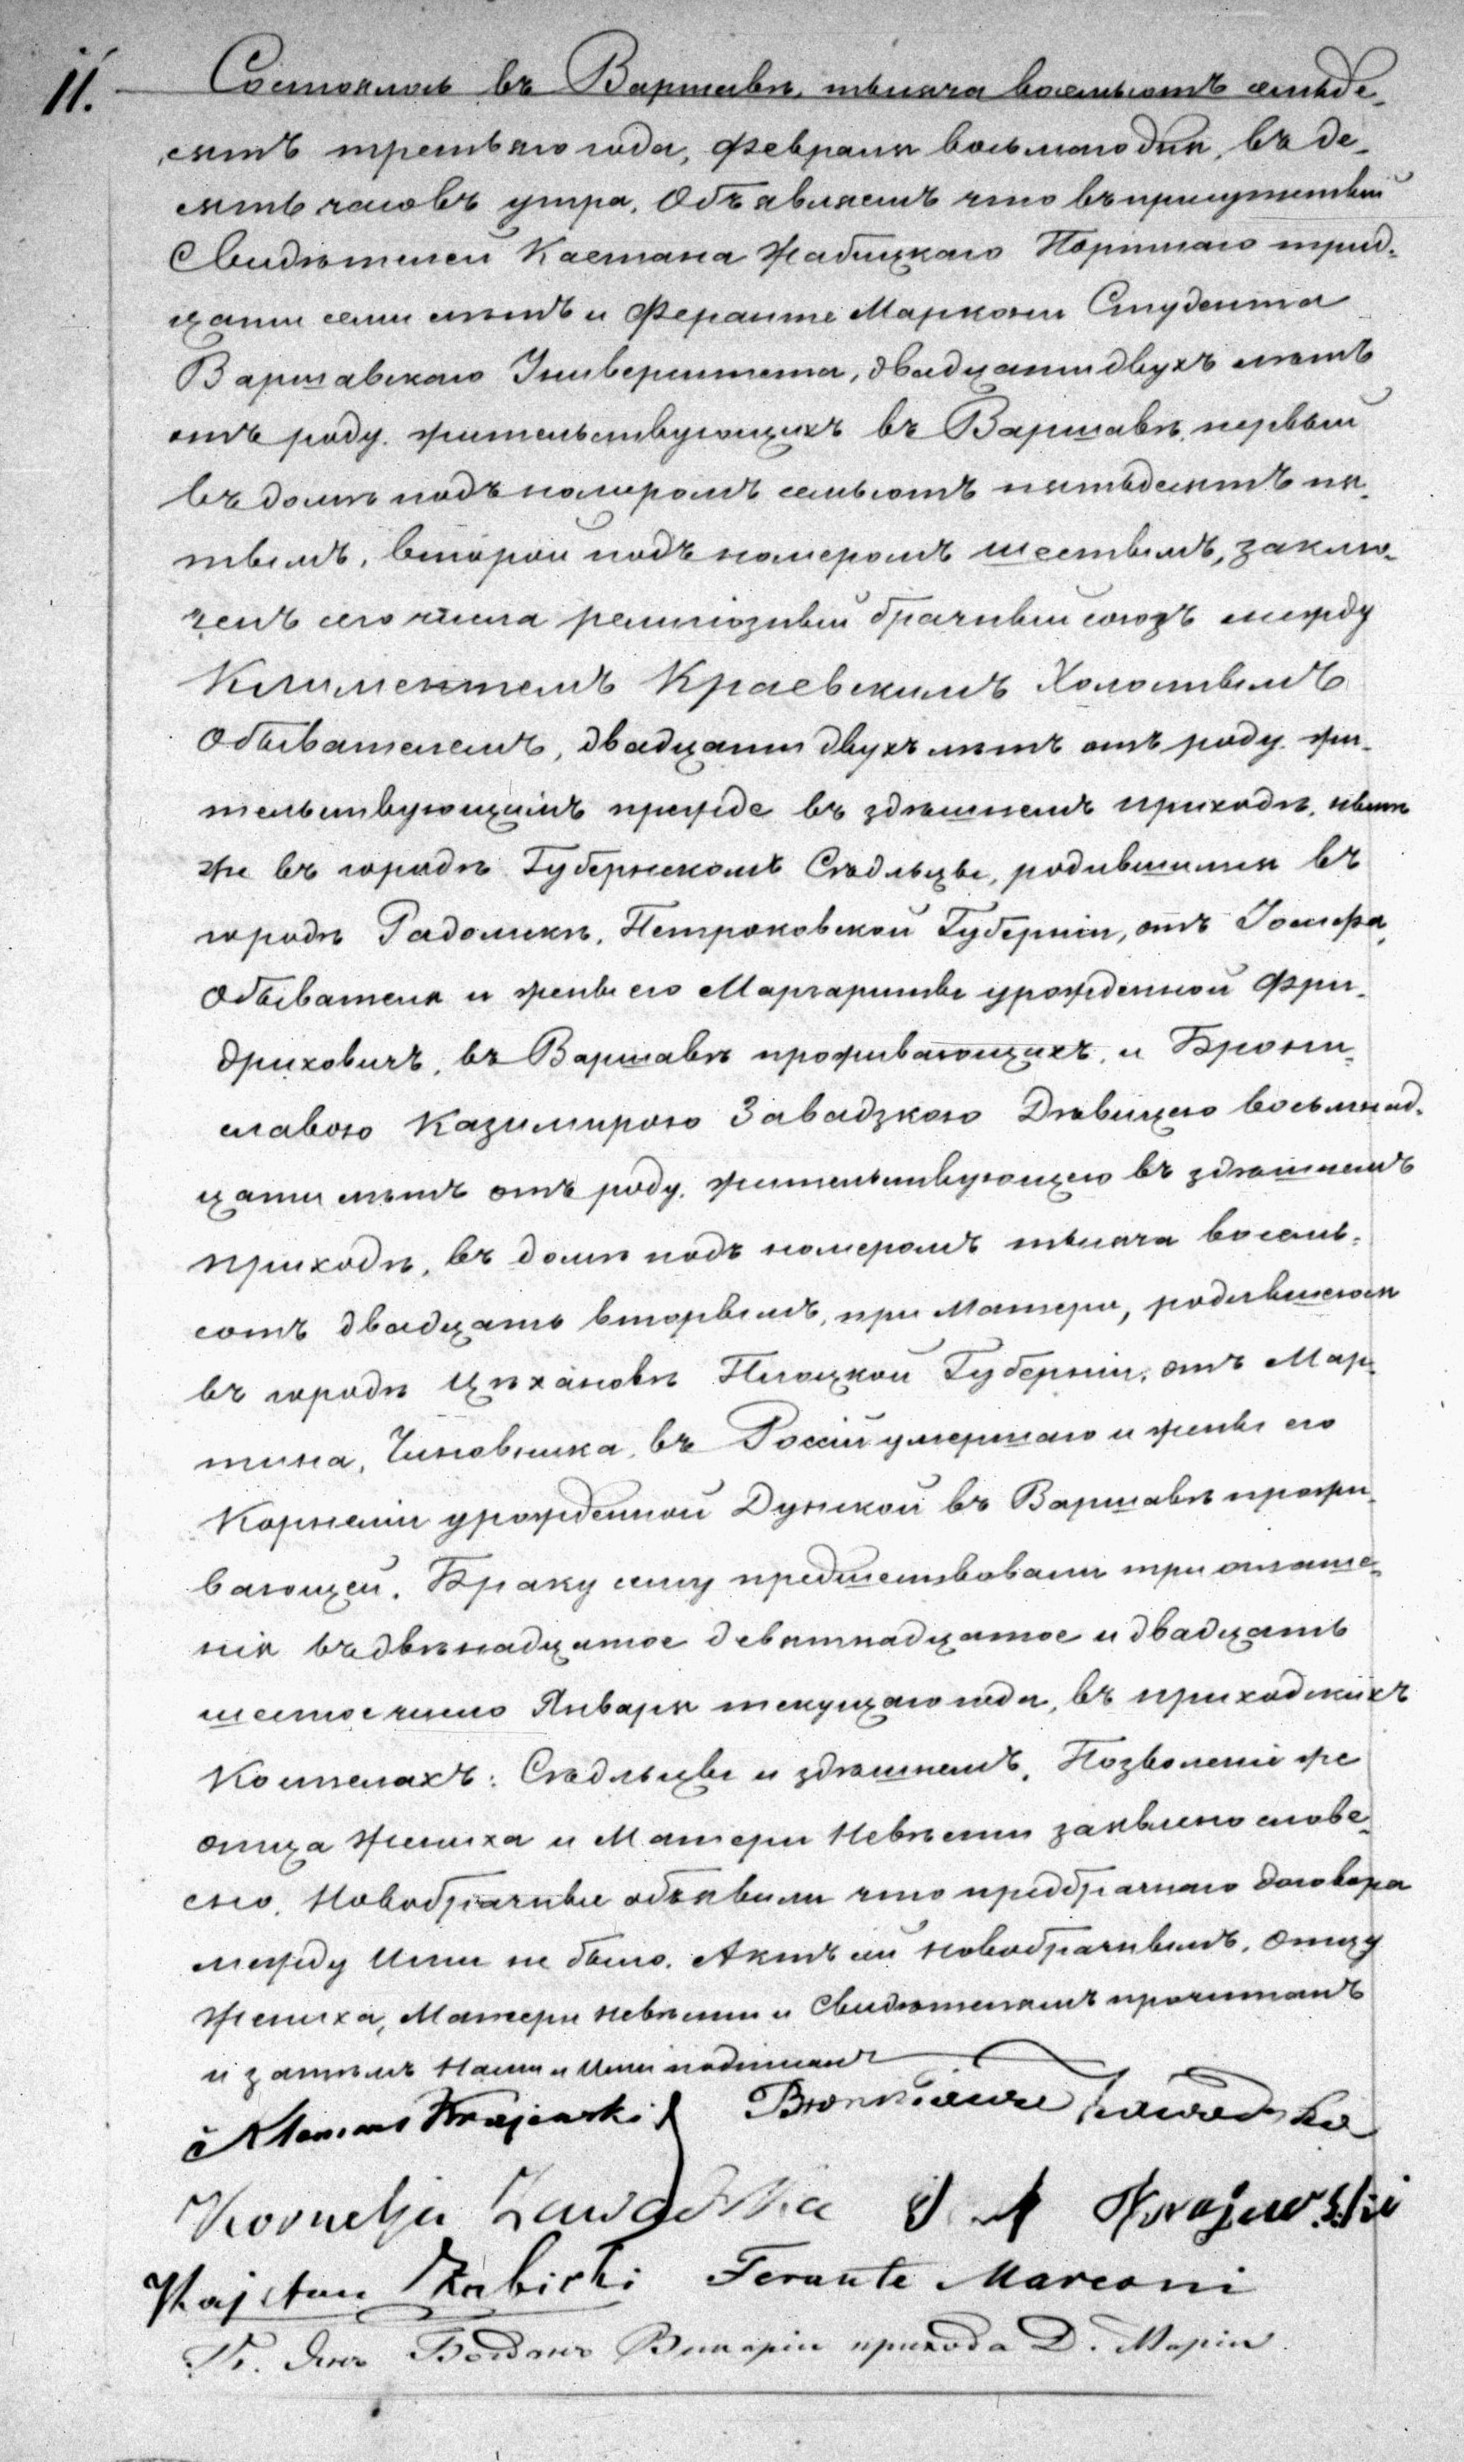 11. Состоялось въ Варшавѣ, тысяча восемьсотъ семьде-
сятъ третьяго года, Февраля восьмаго дня, въ де-
сять часовъ утра. Объявляемъ что въ присутствіи
Свидѣтелей Каетана Жабицкаго Портнаго трид-
цати семи лѣтъ и Феранте Маркони Студента
Варшавскаго Университета, двадцати двухъ лѣтъ
отъ роду, жительствующихъ въ Варшавѣ, первый
въ домѣ подъ номеромъ семьсотъ пятьдесятъ пя-
тымъ, второй подъ номеромъ шестымъ, заклю-
ченъ сего числа религіозный брачный союзъ между
Климентемъ Краевскимъ Холостымъ
Обывателемъ, двадцати двухъ лѣтъ отъ роду, жи-
тельствующимъ прежде въ здѣшнемъ приходѣ, нынѣ
же въ городѣ Губернскомъ Сѣдльцы, родившимся въ
городѣ Радомскѣ, Петроковской Губерніи, отъ Іосифа,
Обывателя и жены его Маргариты урожденной Фри-
дриховичъ, въ Варшавѣ проживающихъ, и Брони-
славою Казимирою Завадзкою Дѣвицею восьмнад-
цати лѣтъ отъ роду, жительствующею въ здѣшнемъ
приходѣ, въ домѣ подъ номеромъ тысяча восемь-
сотъ двадцать вторымъ, при Матери, родившеюся
въ городѣ Цѣхановѣ Плоцкой Губерніи, отъ Мар-
тина, Чиновника, въ Россіи умершаго и жены его
Корнеліи урожденной Дунской въ Варшавѣ прожи-
вающей. Браку сему предшествовали три оглаше-
нія въ двѣнадцатое девятнадцатое и двадцать
шестое число Января текущаго года, въ приходскихъ
Костелахъ: Сѣдльцы и здѣшнемъ. Позволеніе же
отца Жениха и Матери Невѣсты заявлено слове-
сно. Новобрачные объявили что предбрачнаго договора
между Ими не было. Актъ сей новобрачнымъ, отцу
Жениха, Матери невѣсты и Свидѣтелямъ прочитанъ
и затѣмъ Нами и Ими подписанъ
Klemens Krajewski Bronisława Zawadzka
Kornelja Zawadzka J Krajewski
Kajetan Żabicki Ferante Marconi
Кс. Янъ Богданъ Викарій прихода Д. Маріи